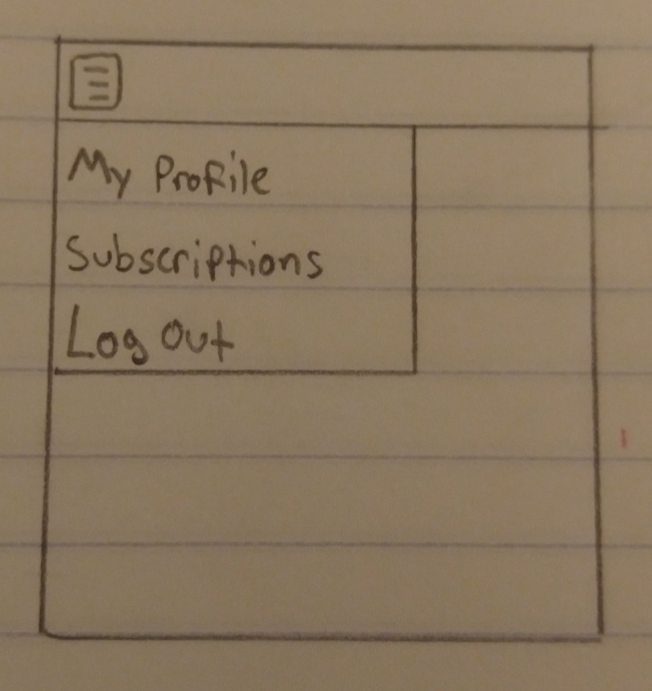 My Profile
Subscriptions
Log Out